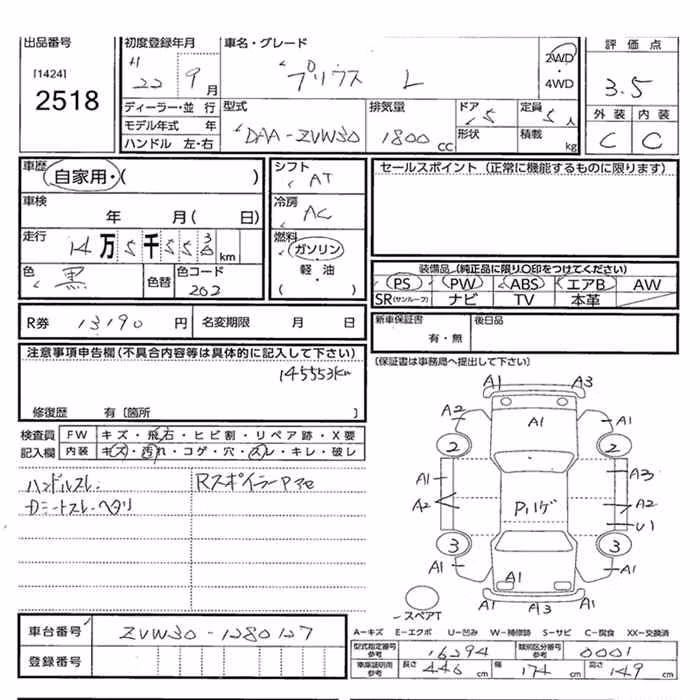 出品番号
[1424]
2518
初度登録年月
H 22 9月
車名・グレード
プリウス L
2WD
4WD
評価点
3.5
ディーラー・並行
モデル年式 年
ハンドル 左・右
型式
DAA-ZVW30
排気量
1800cc
ドア 5
形状
定員 5人
積載 kg
外装 内装
C C
車歴
自家用・( )
シフト
AT
セールスポイント (正常に機能するものに限ります)
車検
年 月( 日)
冷房
AC
走行
14万5千55 km
燃料
ガソリン
軽・油
( )
色
黒
色替
色コード
202
装備品 (純正品に限り○印をつけてください)
PS PW ABS エアB AW
SR(サンルーフ) ナビ TV 本革
R券 13190円
名変期限 月 日
新車保証書
有・無
後日品
注意事項申告欄(不具合内容等は具体的に記入して下さい)
145553km
修復歴 有〔箇所 〕
(保証書は事務局へ提出して下さい)
検査員
記入欄
FW キズ・飛石・ヒビ割・リペア跡・X要
内装 キズ・汚れ・コゲ・穴・スレ・キレ・破レ
ハンドルスレ
Dシートスレ・ヘタリ
RスポイラーP
A1 A3
A2 A1 A1
2 2
A1 A3
A2 Pハゲ A2
U1
3 3
A1 A1
A1 A1
A1 A3 A1
スペアT
車台番号
ZVW30-1280127
登録番号
A-キズ E-エクボ U-凹み W-補修跡 S-サビ C-腐食 XX-交換済
型式指定番号
参考
16294
類別区分番号
参考
0001
車庫証明用
参考
長さ 446cm
幅 174cm
高さ 149cm